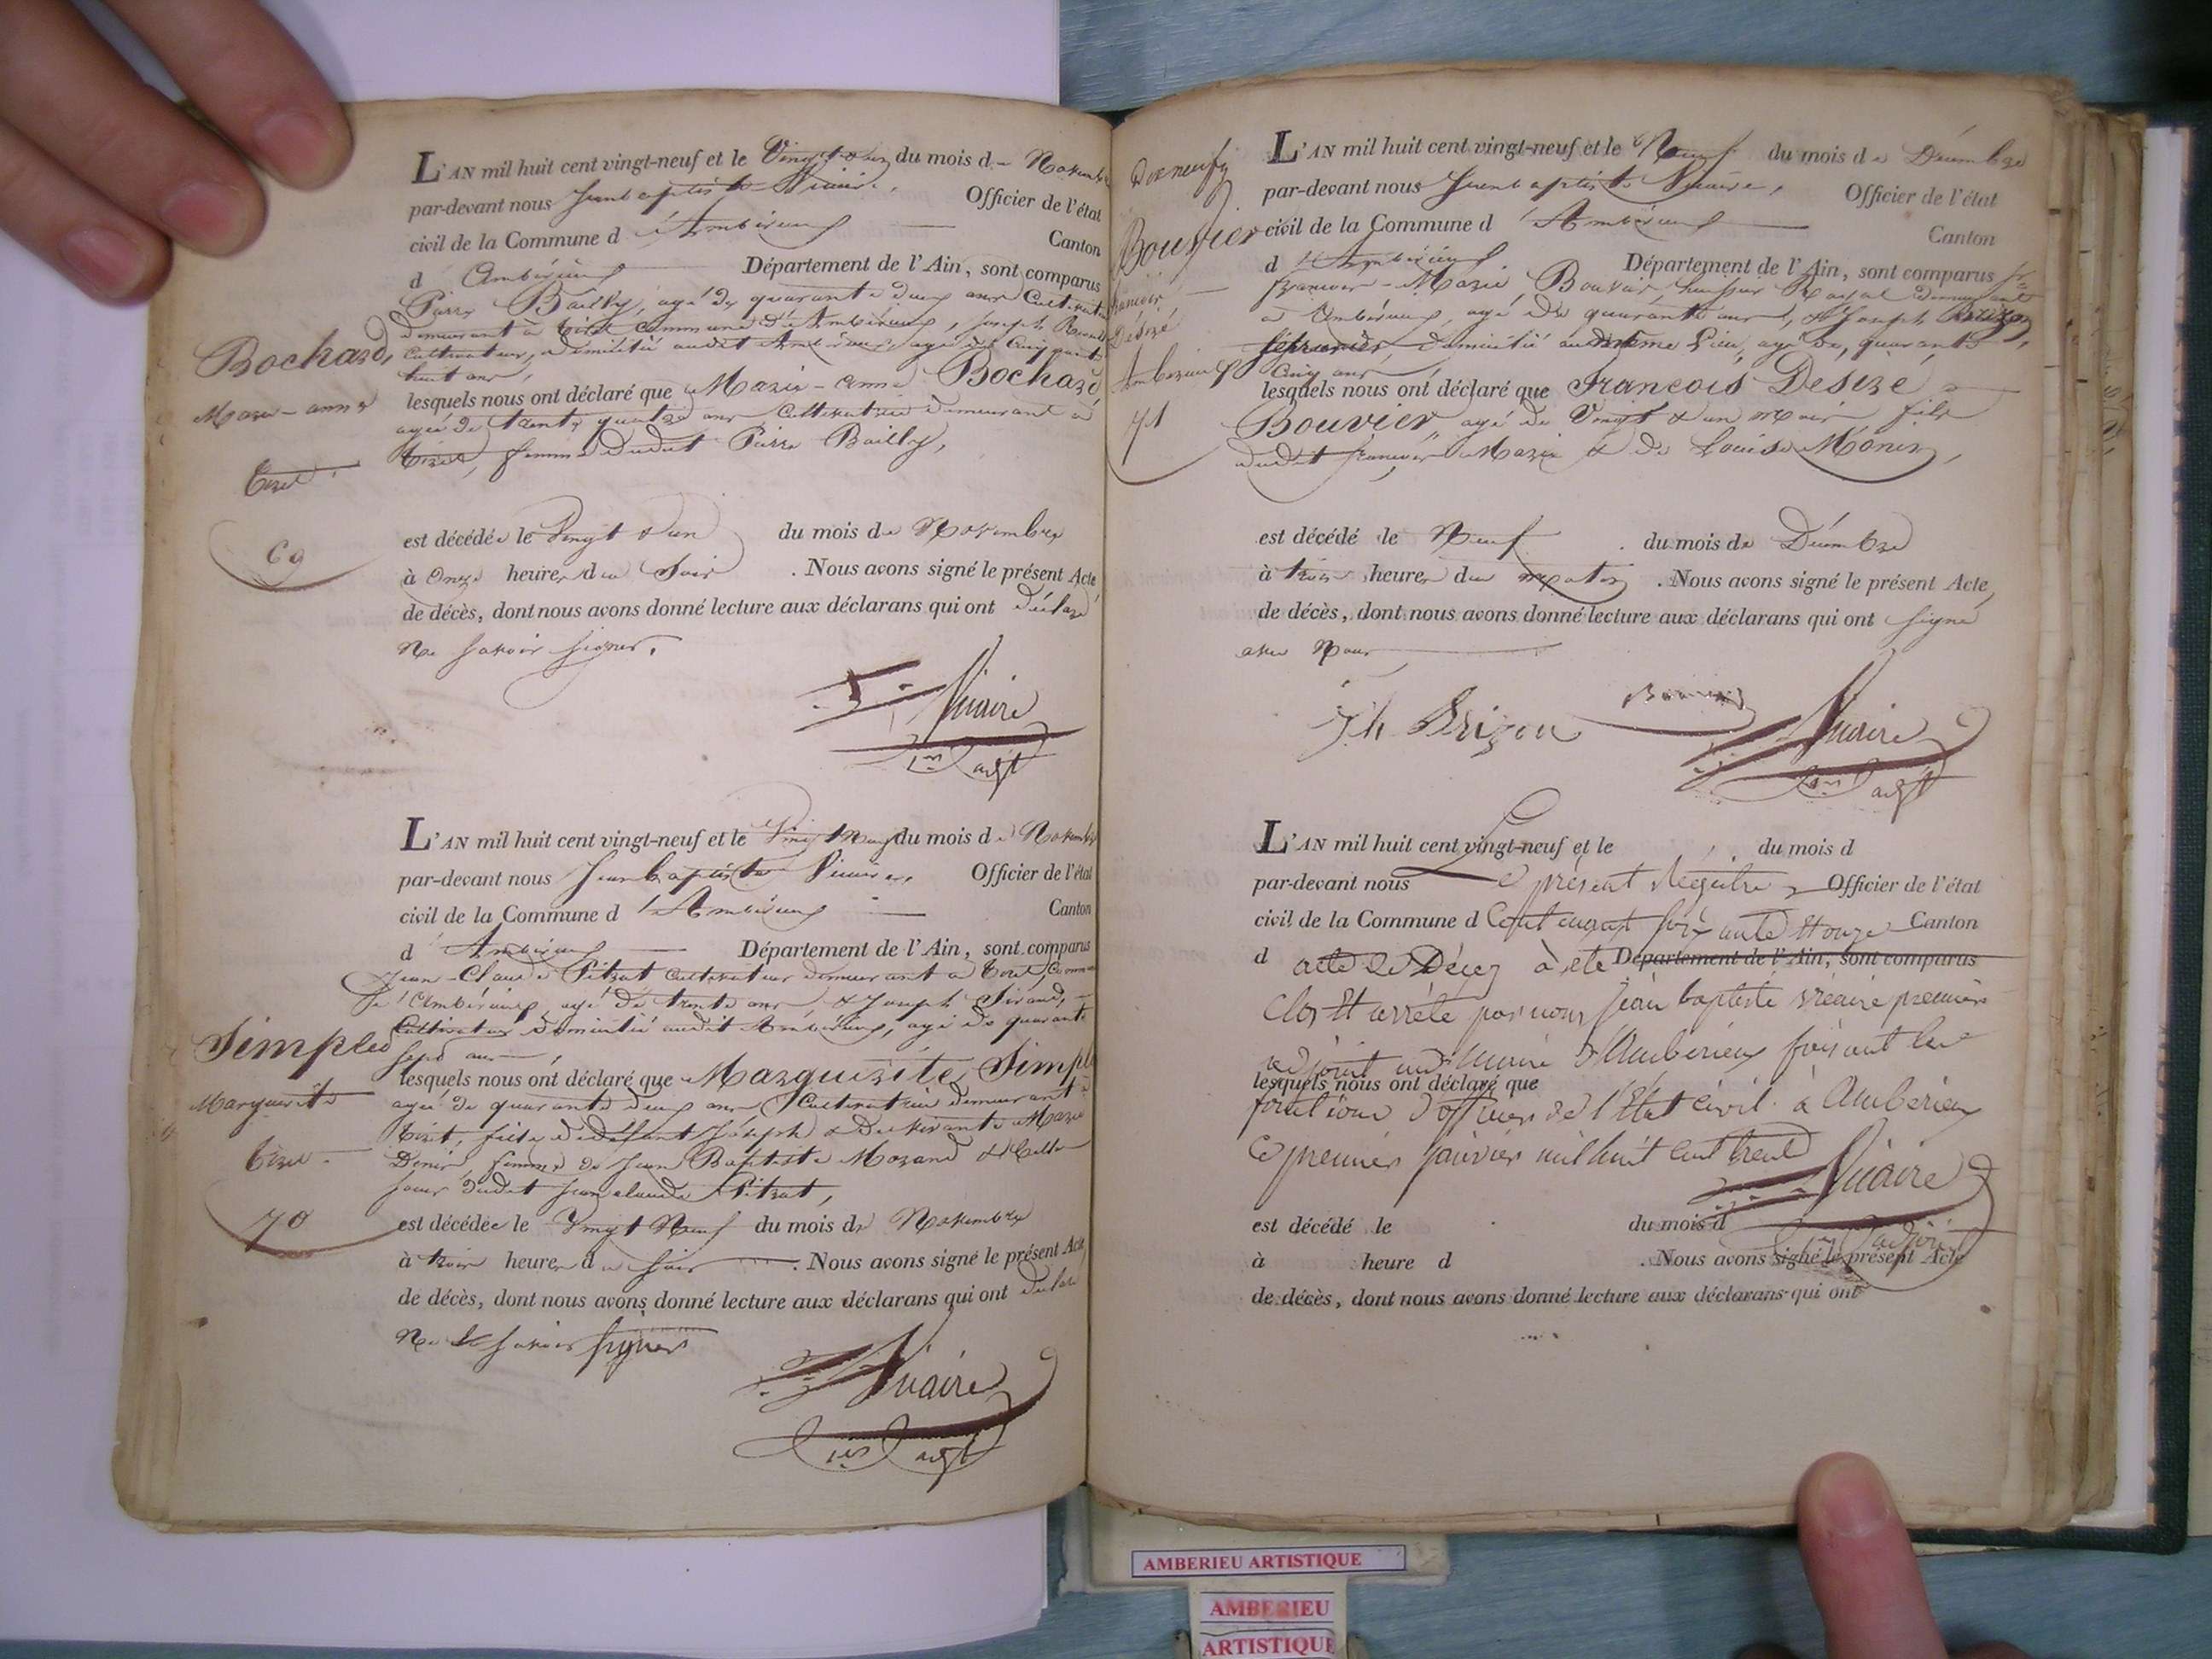 L'AN mil huit cent vingt-neuf et le Vingt deux du mois de Novembre
par-devant nous Jean baptiste Vicaire, Officier de l'état
civil de la Commune d'Ambérieux Canton
d'Ambérieux Département de l'Ain, sont comparus
Pierre Bailly, agé de quarante deux ans Cultivateur
demeurant à Tiret commune d'Ambérieux, Joseph
Cultivateur, domicilié audit Ambérieux, agé de Cinquante
huit ans,
lesquels nous ont déclaré que Marie-anne Bochard
agée de trente quatre ans Cultivatrice demeurant à
Tiret, femme dudit Pierre Bailly,
Bochard,
Marie-anne
Tiret
69
est décédée le Vingt & un du mois de Novembre
à Onze heures du Soir . Nous avons signé le présent Acte
de décès, dont nous avons donné lecture aux déclarans qui ont déclaré
Ne Savoir signer.
Vicaire
1er adjt
L'AN mil huit cent vingt-neuf et le Vingt Neuf du mois de Novembre
par-devant nous Jean baptiste Vicaire, Officier de l'état
civil de la Commune d'Ambérieux Canton
d'Ambérieux Département de l'Ain, sont comparus
Jean-Claude Pitrat Cultivateur demeurant à Tiret, Commune
d'Ambérieux, agé de trente ans, & Joseph Sirand,
Cultivateur domicilié audit Ambérieux, agé de quarante
sept ans,
lesquels nous ont déclaré que Marguerite Simple
agée de quarante deux ans Cultivatrice demeurant à
Tiret, fille de défunt Joseph & de vivante Marie
Denis, femme de Jean Baptiste Morand & belle
soeur dudit Jean claude Pitrat,
Simple
Marguerite
Tiret
70
est décédée le Vingt Neuf du mois de Novembre
à trois heures du soir . Nous avons signé le présent Acte
de décès, dont nous avons donné lecture aux déclarans qui ont déclaré
Ne Savoir signer
Vicaire
1er adjt
L'AN mil huit cent vingt-neuf et le Neuf du mois de Décembre
par-devant nous Jean baptiste Vicaire, Officier de l'état
civil de la Commune d'Ambérieux Canton
d'Ambérieux Département de l'Ain, sont comparus Sr
francois-Marie Bouvier, huissier Royal demeurant
à Ambérieux, agé de quarante ans, & Joseph Brizon
domicilié au même Lieu, agé de quarante
Cinq ans
lesquels nous ont déclaré que Francois Desiré
Bouvier agé de Vingt & un mois fils
dudit françois Marie & de Louise Monin,
Bouvier
francois
Désiré
Ambérieux
71
est décédé le Neuf du mois de Décembre
à trois heures du matin . Nous avons signé le présent Acte
de décès, dont nous avons donné lecture aux déclarans qui ont signé
avec Nous
Jh Brizon
Bouvier
Vicaire
1er adjt
L'AN mil huit cent vingt-neuf et le du mois d
par-devant nous Le présent Régistre Officier de l'état
civil de la Commune d Contenant soixante et onze Canton
d acte de Décez à été Département de l'Ain, sont comparus
Clos Et arrêté par nous Jean baptiste vicaire premier
adjoint au Maire d'Ambérieux faisant les
lesquels nous ont déclaré que
fonctions d'officier de l'Etat civil à Ambérieux
Ce premier janvier mil huit cent trente
Vicaire
1er adjoint
est décédé le du mois d
à heure d . Nous avons signé le présent Acte
de décès, dont nous avons donné lecture aux déclarans qui ont
AMBERIEU ARTISTIQUE
AMBERIEU
ARTISTIQUE